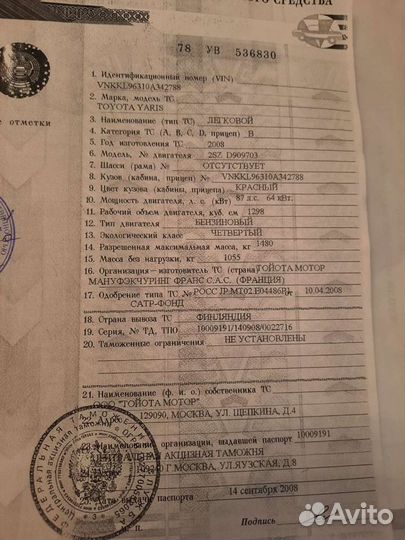 СРЕДСТВА
78 УВ 536830
е отметки
1. Идентификационный номер (VIN)
VNKKL96310A342788
2. Марка, модель ТС
TOYOTA YARIS
3. Наименование (тип ТС) ЛЕГКОВОЙ
4. Категория ТС (А, В, С, D, прицеп) В
5. Год изготовления ТС 2008
6. Модель, № двигателя 2SZ D909703
7. Шасси (рама) № ОТСУТСТВУЕТ
8. Кузов (кабина, прицеп) № VNKKL96310A342788
9. Цвет кузова (кабины, прицепа) КРАСНЫЙ
10. Мощность двигателя, л. с. (кВт) 87 л.с. 64 кВт.
11. Рабочий объем двигателя, куб. см 1298
12. Тип двигателя БЕНЗИНОВЫЙ
13. Экологический класс ЧЕТВЕРТЫЙ
14. Разрешенная максимальная масса, кг 1480
15. Масса без нагрузки, кг 1055
16. Организация – изготовитель ТС (страна) ТОЙОТА МОТОР
МАНУФЭКЧУРИНГ ФРАНС С.А.С. (ФРАНЦИЯ)
17. Одобрение типа ТС № РОСС JP.MT02.E04486 10.04.2008
САТР-ФОНД
18. Страна вывоза ТС ФИНЛЯНДИЯ
19. Серия, № ТД, ТПО 10009191/140908/0022716
20. Таможенные ограничения НЕ УСТАНОВЛЕНЫ
21. Наименование (ф. и. о.) собственника ТС
ООО "ТОЙОТА МОТОР"
129090, МОСКВА, УЛ. ЩЕПКИНА, Д.4
23. Наименование организации, выдавшей паспорт 10009191
ЦЕНТРАЛЬНАЯ АКЦИЗНАЯ ТАМОЖНЯ
109240 Г МОСКВА, УЛ.ЯУЗСКАЯ, Д.8
25. Дата выдачи паспорта
14 сентября 2008
Подпись
М. п.
ФЕДЕРАЛЬНАЯ ТАМОЖЕННАЯ СЛУЖБА
Центральная акцизная таможня
Avito